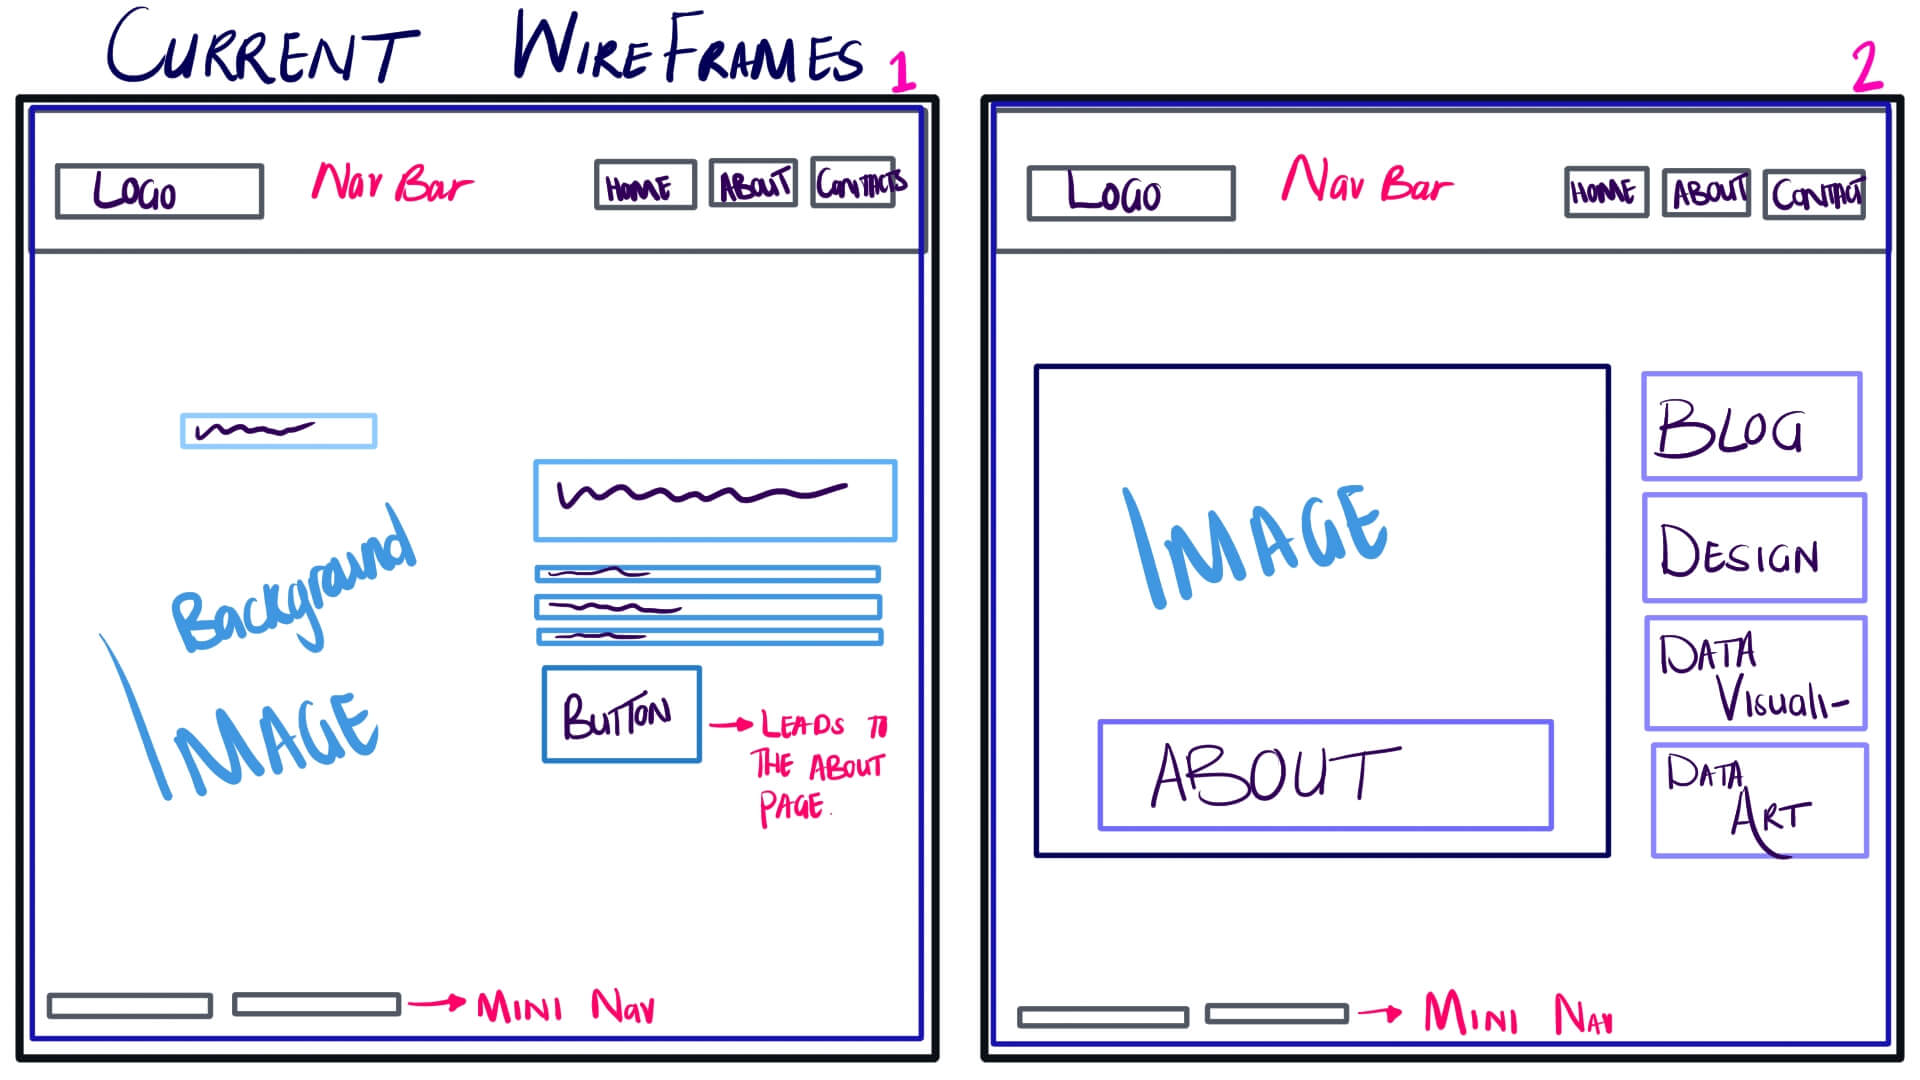 CURRENT WIREFRAMES 1
LOGO Nav Bar HOME ABOUT CONTACTS
Background
IMAGE
BUTTON
LEADS TO
THE ABOUT
PAGE.
MINI NAV
2
LOGO Nav Bar HOME ABOUT CONTACT
IMAGE
ABOUT
BLOG
DESIGN
DATA
VISUALI-
DATA
ART
MINI NAV